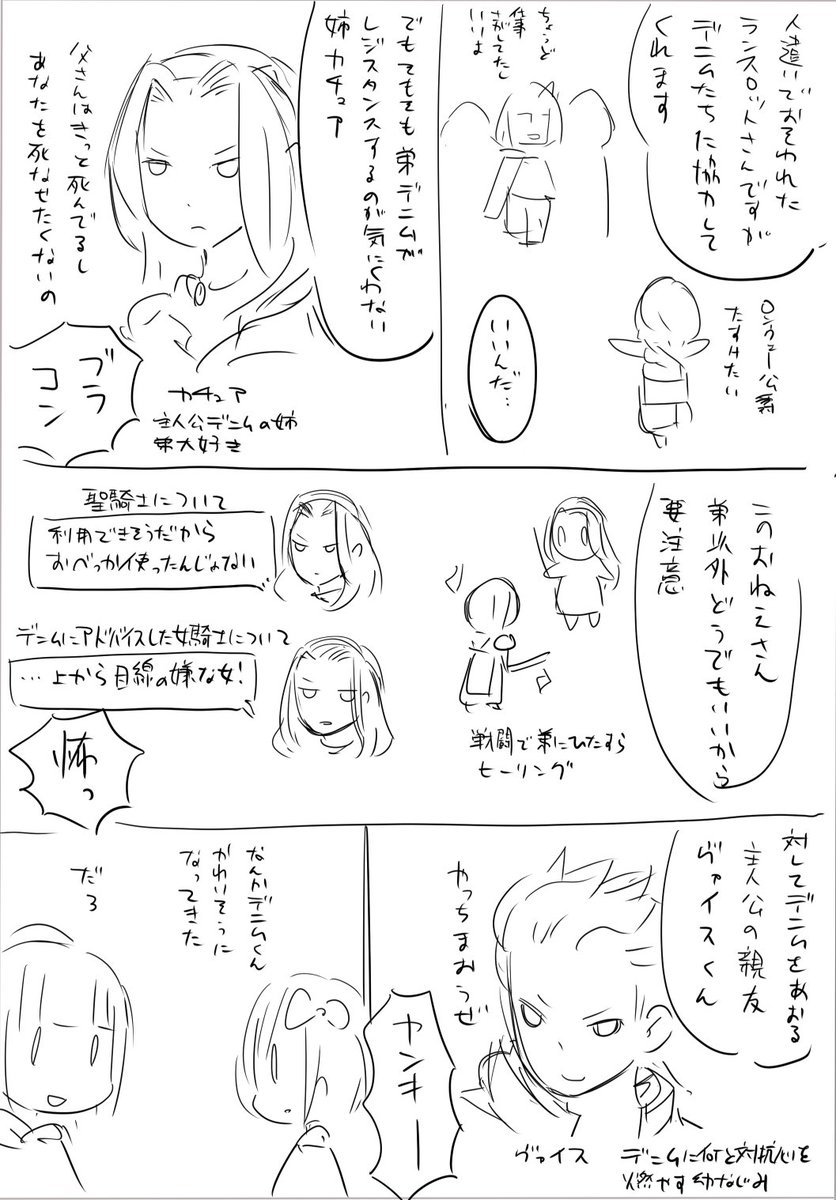 人違いでおそわれた
ランスロットさんですが
デニムたちに協力して
くれます
ちょうど
仕事
さがしてたし
いいよ
ロンウェー公爵
たすけたい
いいんだ…
でもでもでも弟デニムが
レジスタンスするのが気にくわない
姉カチュア
父さんはきっと死んでるし
あなたを死なせたくないの
ブラ
コン
カチュア
主人公デニムの姉
弟大好き
このおねえさん
弟以外どうでもいいから
要注意
戦闘で弟にひたすら
ヒーリング
聖騎士について
利用できそうだから
おべっか使ったんじゃない
デニムにアドバイスした女騎士について
…上から目線の嫌な女!
怖っ
対してデニムをあおる
主人公の親友
ヴァイスくん
やっちまおうぜ
ヤンキー
ヴァイス
デニムに何かと対抗心を
燃やす幼なじみ
なんかデニムくん
かわいそうに
なってきた
だろ